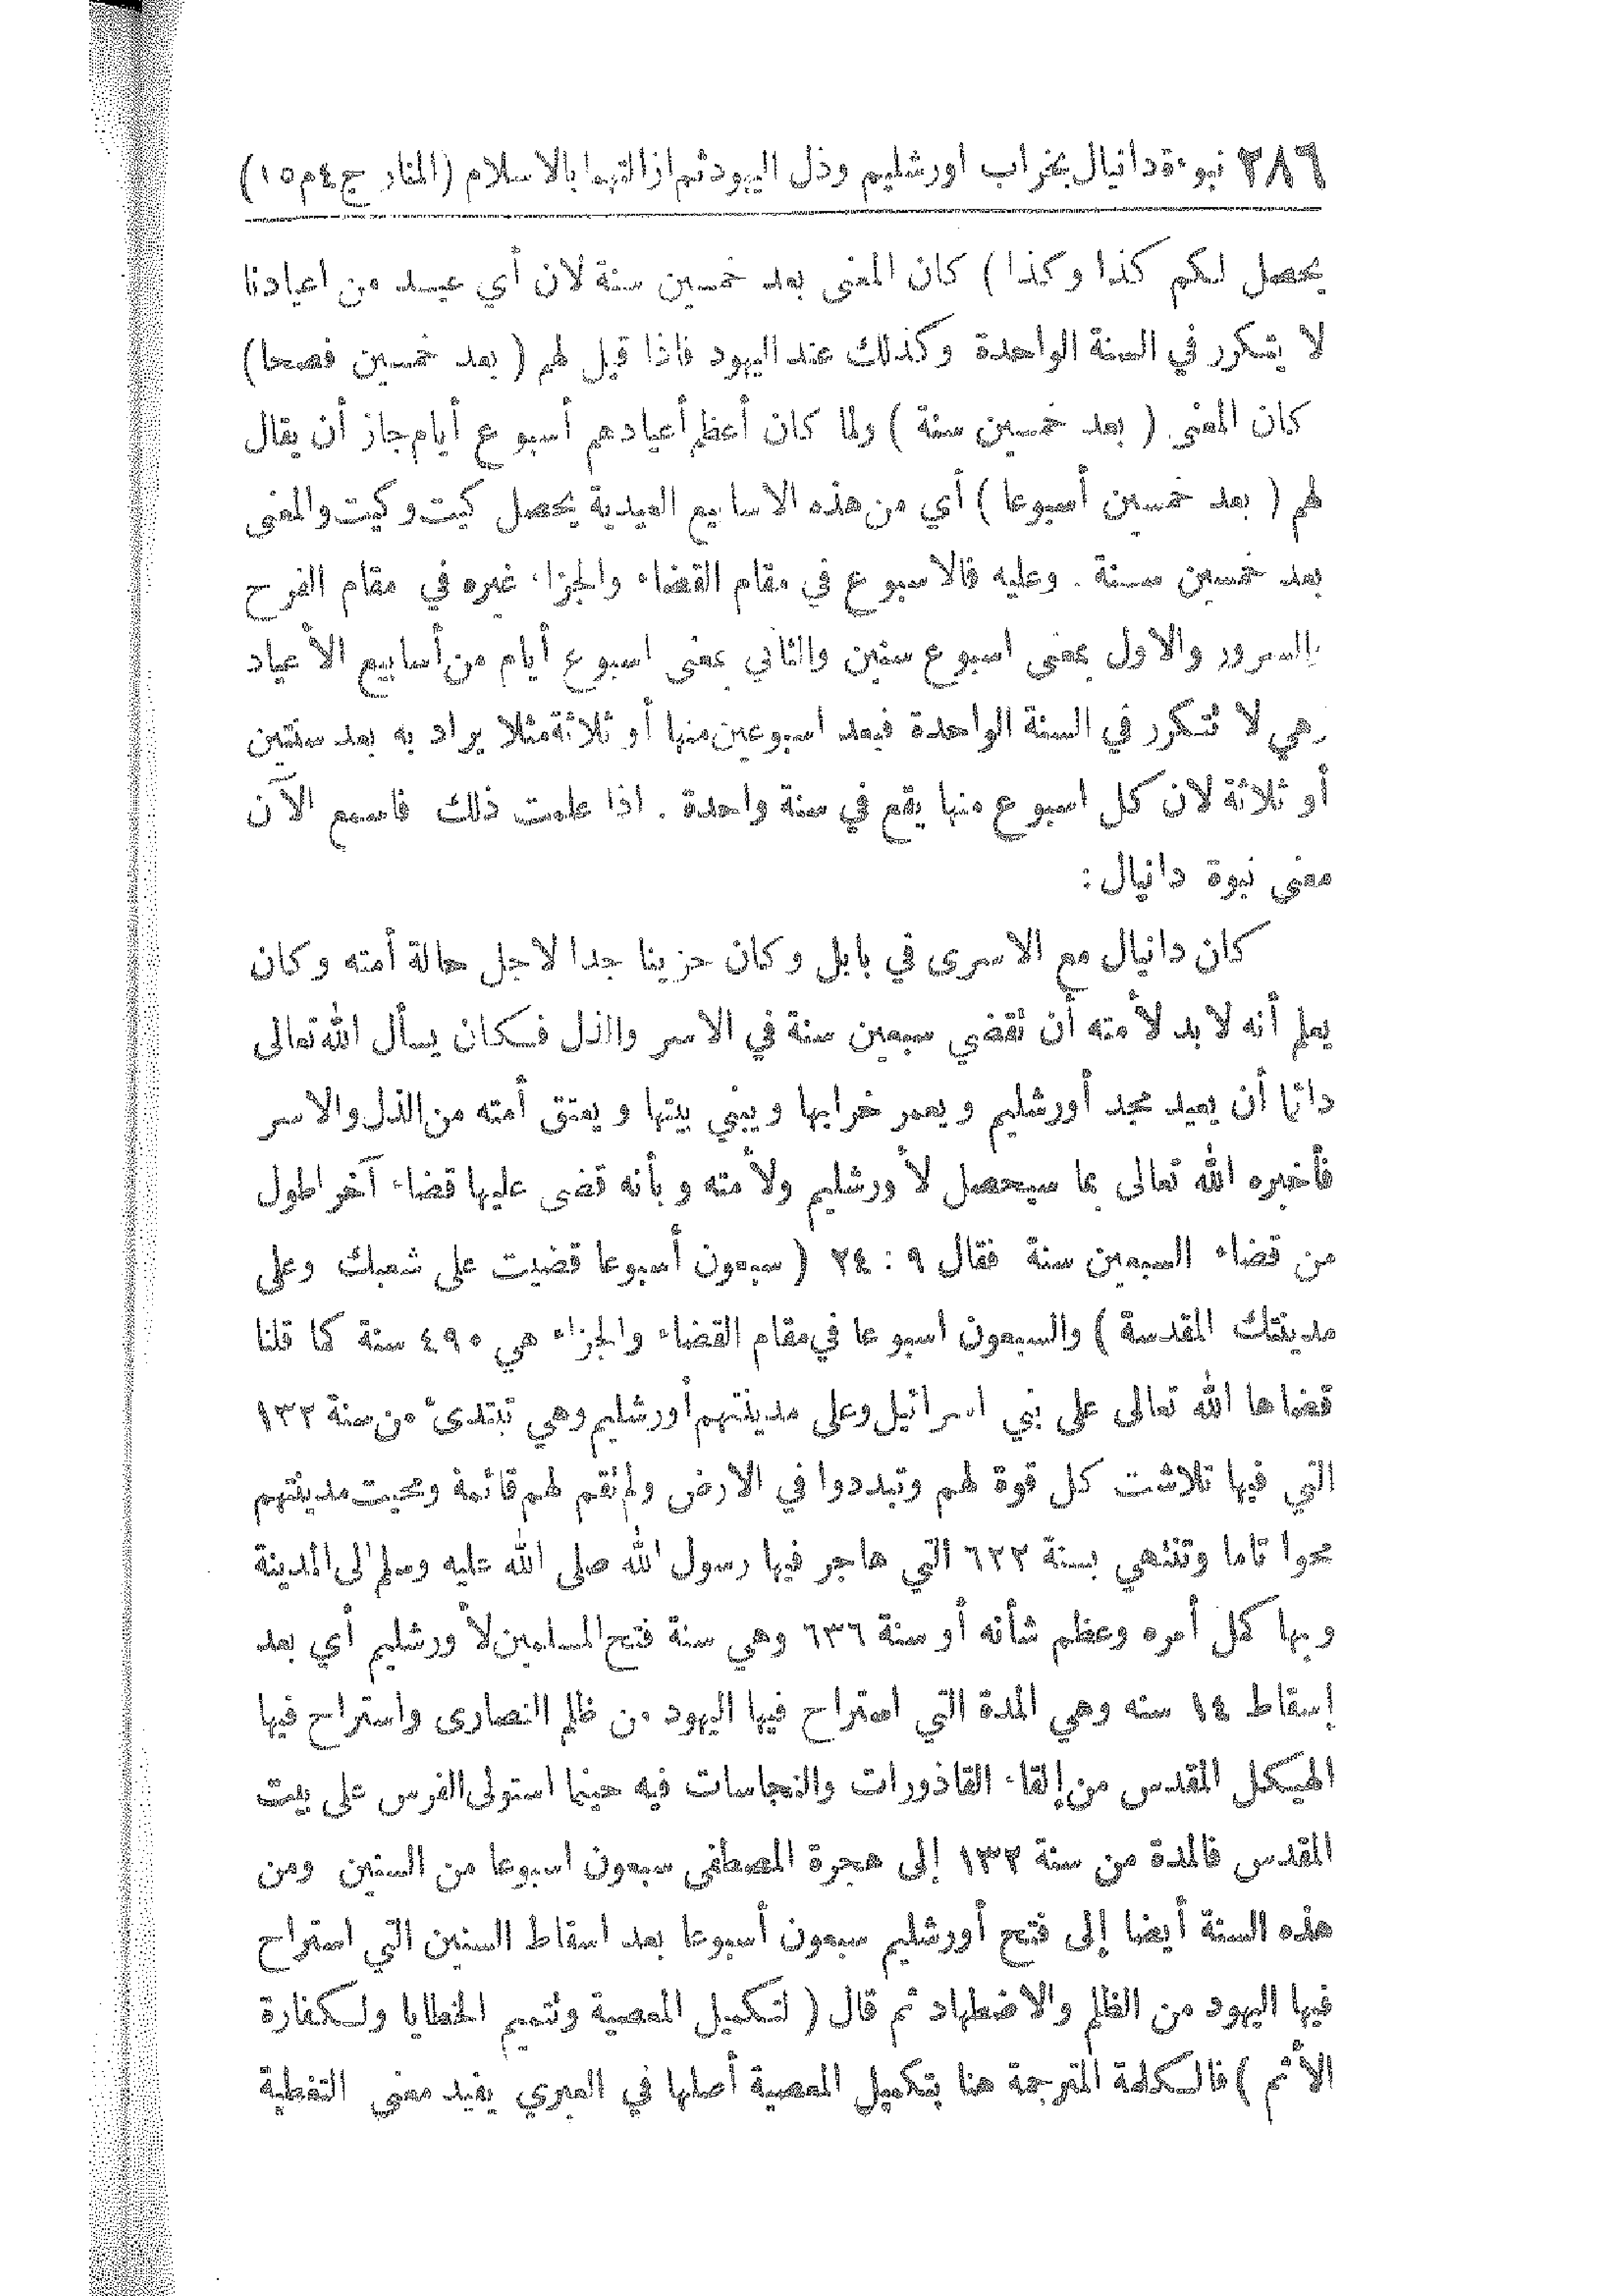 ٢٨٦ نبوءة دانيال بخراب اورشليم وذل اليهود ثم ازالتهما بالاسلام (المنار ج٤م١٥)
يحصل لكم كذا وكذا ) كان المعنى بعد خمسين سنة لان أي عيد من اعيادنا
لا يتكرر في السنة الواحدة وكذلك عند اليهود فاذا قيل لهم ( بعد خمسين فصحا )
كان المعنى ( بعد خمسين سنة ) ولما كان أعظم أعيادهم أسبوع أيام جاز أن يقال
لهم ( بعد خمسين أسبوعا ) أي من هذه الاسابيع العيدية يحصل كيت وكيت والمعنى
بعد خمسين سنة . وعليه فالاسبوع في مقام القضاء والجزاء غيره في مقام الفرح
والسرور والاول بمعنى اسبوع سنين والثاني بمعنى اسبوع أيام من أسابيع الأعياد
وهي لا تتكرر في السنة الواحدة فبعد اسبوعين منها أو ثلاثة مثلا يراد به بعد سنتين
أو ثلاثة لان كل اسبوع منها يقع في سنة واحدة . اذا علمت ذلك فاسمع الآن
معنى نبوة دانيال :
كان دانيال مع الاسرى في بابل وكان حزينا جدا لاجل حالة أمته وكان
يعلم أنه لا بد لأمته أن تقضي سبعين سنة في الاسر والذل فكان يسأل الله تعالى
دائما أن يعيد مجد أورشليم ويعمر خرابها ويبني بيتها ويعتق أمته من الذل والاسر
فأخبره الله تعالى بما سيحصل لأورشليم ولأمته وبأنه قضى عليها قضاء آخر اطول
من قضاء السبعين سنة فقال ٩ : ٢٤ ( سبعون أسبوعا قضيت على شعبك وعلى
مدينتك المقدسة ) والسبعون اسبوعا في مقام القضاء والجزاء هي ٤٩٠ سنة كما قلنا
قضاها الله تعالى على بني اسرائيل وعلى مدينتهم أورشليم وهي تبتدئ من سنة ١٣٢
التي فيها تلاشت كل قوة لهم وتبددوا في الارض ولم تقم لهم قائمة ومحيت مدينتهم
محوا تاما وتنتهي بسنة ٦٢٢ التي هاجر فيها رسول الله صلى الله عليه وسلم الى المدينة
وبها كمل أمره وعظم شأنه أو سنة ٦٣٦ وهي سنة فتح المسلمين لأورشليم أي بعد
إسقاط ١٤ سنه وهي المدة التي استراح فيها اليهود من ظلم النصارى واستراح فيها
الهيكل المقدس من إلقاء القاذورات والنجاسات فيه حينما استولى الفرس على بيت
المقدس فالمدة من سنة ١٣٢ إلى هجرة المصطفى سبعون اسبوعا من السنين ومن
هذه السنة أيضا إلى فتح أورشليم سبعون أسبوعا بعد اسقاط السنين التي استراح
فيها اليهود من الظلم والاضطهاد ثم قال ( لتكميل المعصية وتتميم الخطايا ولكفارة
الأثم ) فالكلمة المترجمة هنا بتكميل المعصية أصلها في العبري يفيد معنى التغطية